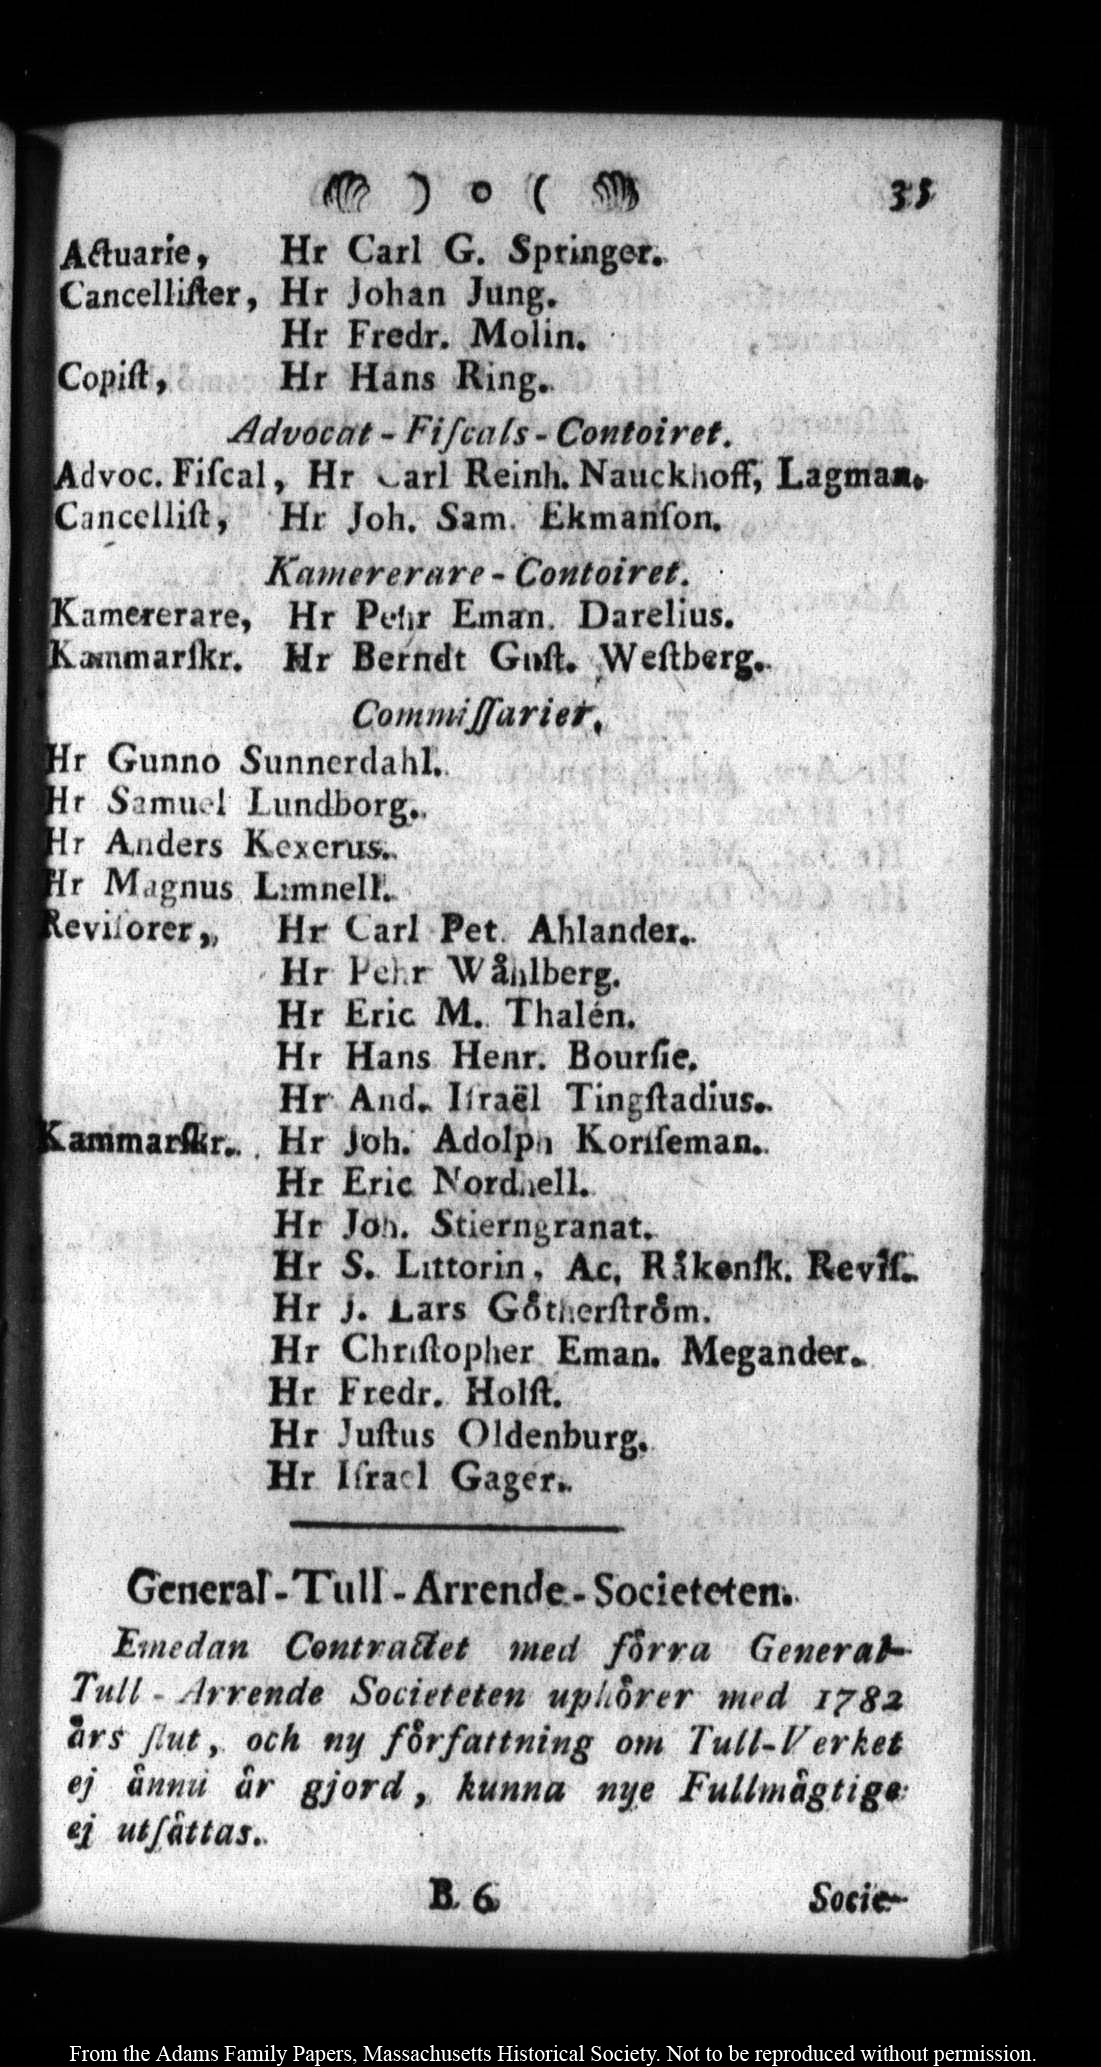 ) o ( 35
Actuarie, Hr Carl G. Springer.
Cancelliſter, Hr Johan Jung.
Hr Fredr. Molin.
Copiſt, Hr Hans Ring.
Advocat-Fiſcals-Contoiret.
Advoc. Fiſcal, Hr Carl Reinh. Nauckhoff, Lagman.
Cancelliſt, Hr Joh. Sam. Ekmanſon.
Kamererare-Contoiret.
Kamererare, Hr Pehr Eman. Darelius.
Kammarſkr. Hr Berndt Guſt. Weſtberg.
Commiſſarier.
Hr Gunno Sunnerdahl.
Hr Samuel Lundborg.
Hr Anders Kexerus.
Hr Magnus Limnell.
Reviſorer, Hr Carl Pet. Ahlander.
Hr Pehr Wåhlberg.
Hr Eric M. Thalén.
Hr Hans Henr. Bourſie.
Hr And. Iſraël Tingſtadius.
Kammarſkr. Hr Joh. Adolph Korſſeman.
Hr Eric Nordnell.
Hr Joh. Stierngranat.
Hr S. Littorin, Ac. Råkenſk. Reviſ.
Hr J. Lars Gåtherſtråm.
Hr Chriſtopher Eman. Megander.
Hr Fredr. Holſt.
Hr Juſtus Oldenburg.
Hr Iſrael Gager.
General-Tull-Arrende-Societeten.
Emedan Contractet med fårra General-
Tull-Arrende Societeten uphårer med 1782
års ſlut, och ny fårfattning om Tull-Verket
ej ånnu år gjord, kunna nye Fullmågtige
ej utſåttas.
B 6 Socie-
From the Adams Family Papers, Massachusetts Historical Society. Not to be reproduced without permission.